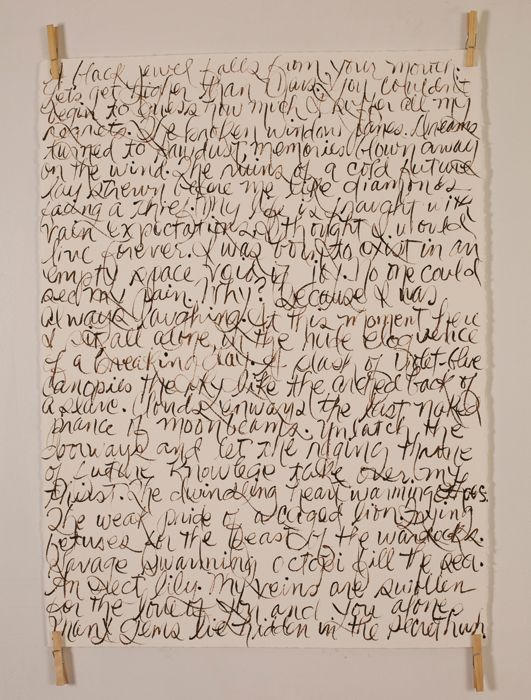 A black jewel falls from your mouth.
Lets get higher than this. You couldn't
begin to guess how much I suffer all my
regrets. The broken window panes. Dreams
turned to sawdust, memories blown away
on the wind. The ruins of a cold future
lay strewn before me like diamonds
facing a thief. My life is fraught with
vain expectations. I thought I would
live forever. I was born to exist in an
empty space void of joy. No one could
see my pain. Why? Because I was
always laughing. At this moment here
I sit all alone, in the huge eloquence
of a breaking day. A slash of violet-blue
canopies the sky like the arched back of
a slave. Clouds the last naked
prance of moonbeams. Unlatch the
doorways and let the raging throne
of future knowlege take over my
thirst. The dwindling heart warming
The weak pride of a caged lion
fetuses for the beast of the warlocks.
Savage swarming octopi fill the sea.
An erect lily. My veins are swollen
for the love of you and you alone.
Many gems lie hidden in the secret hush.